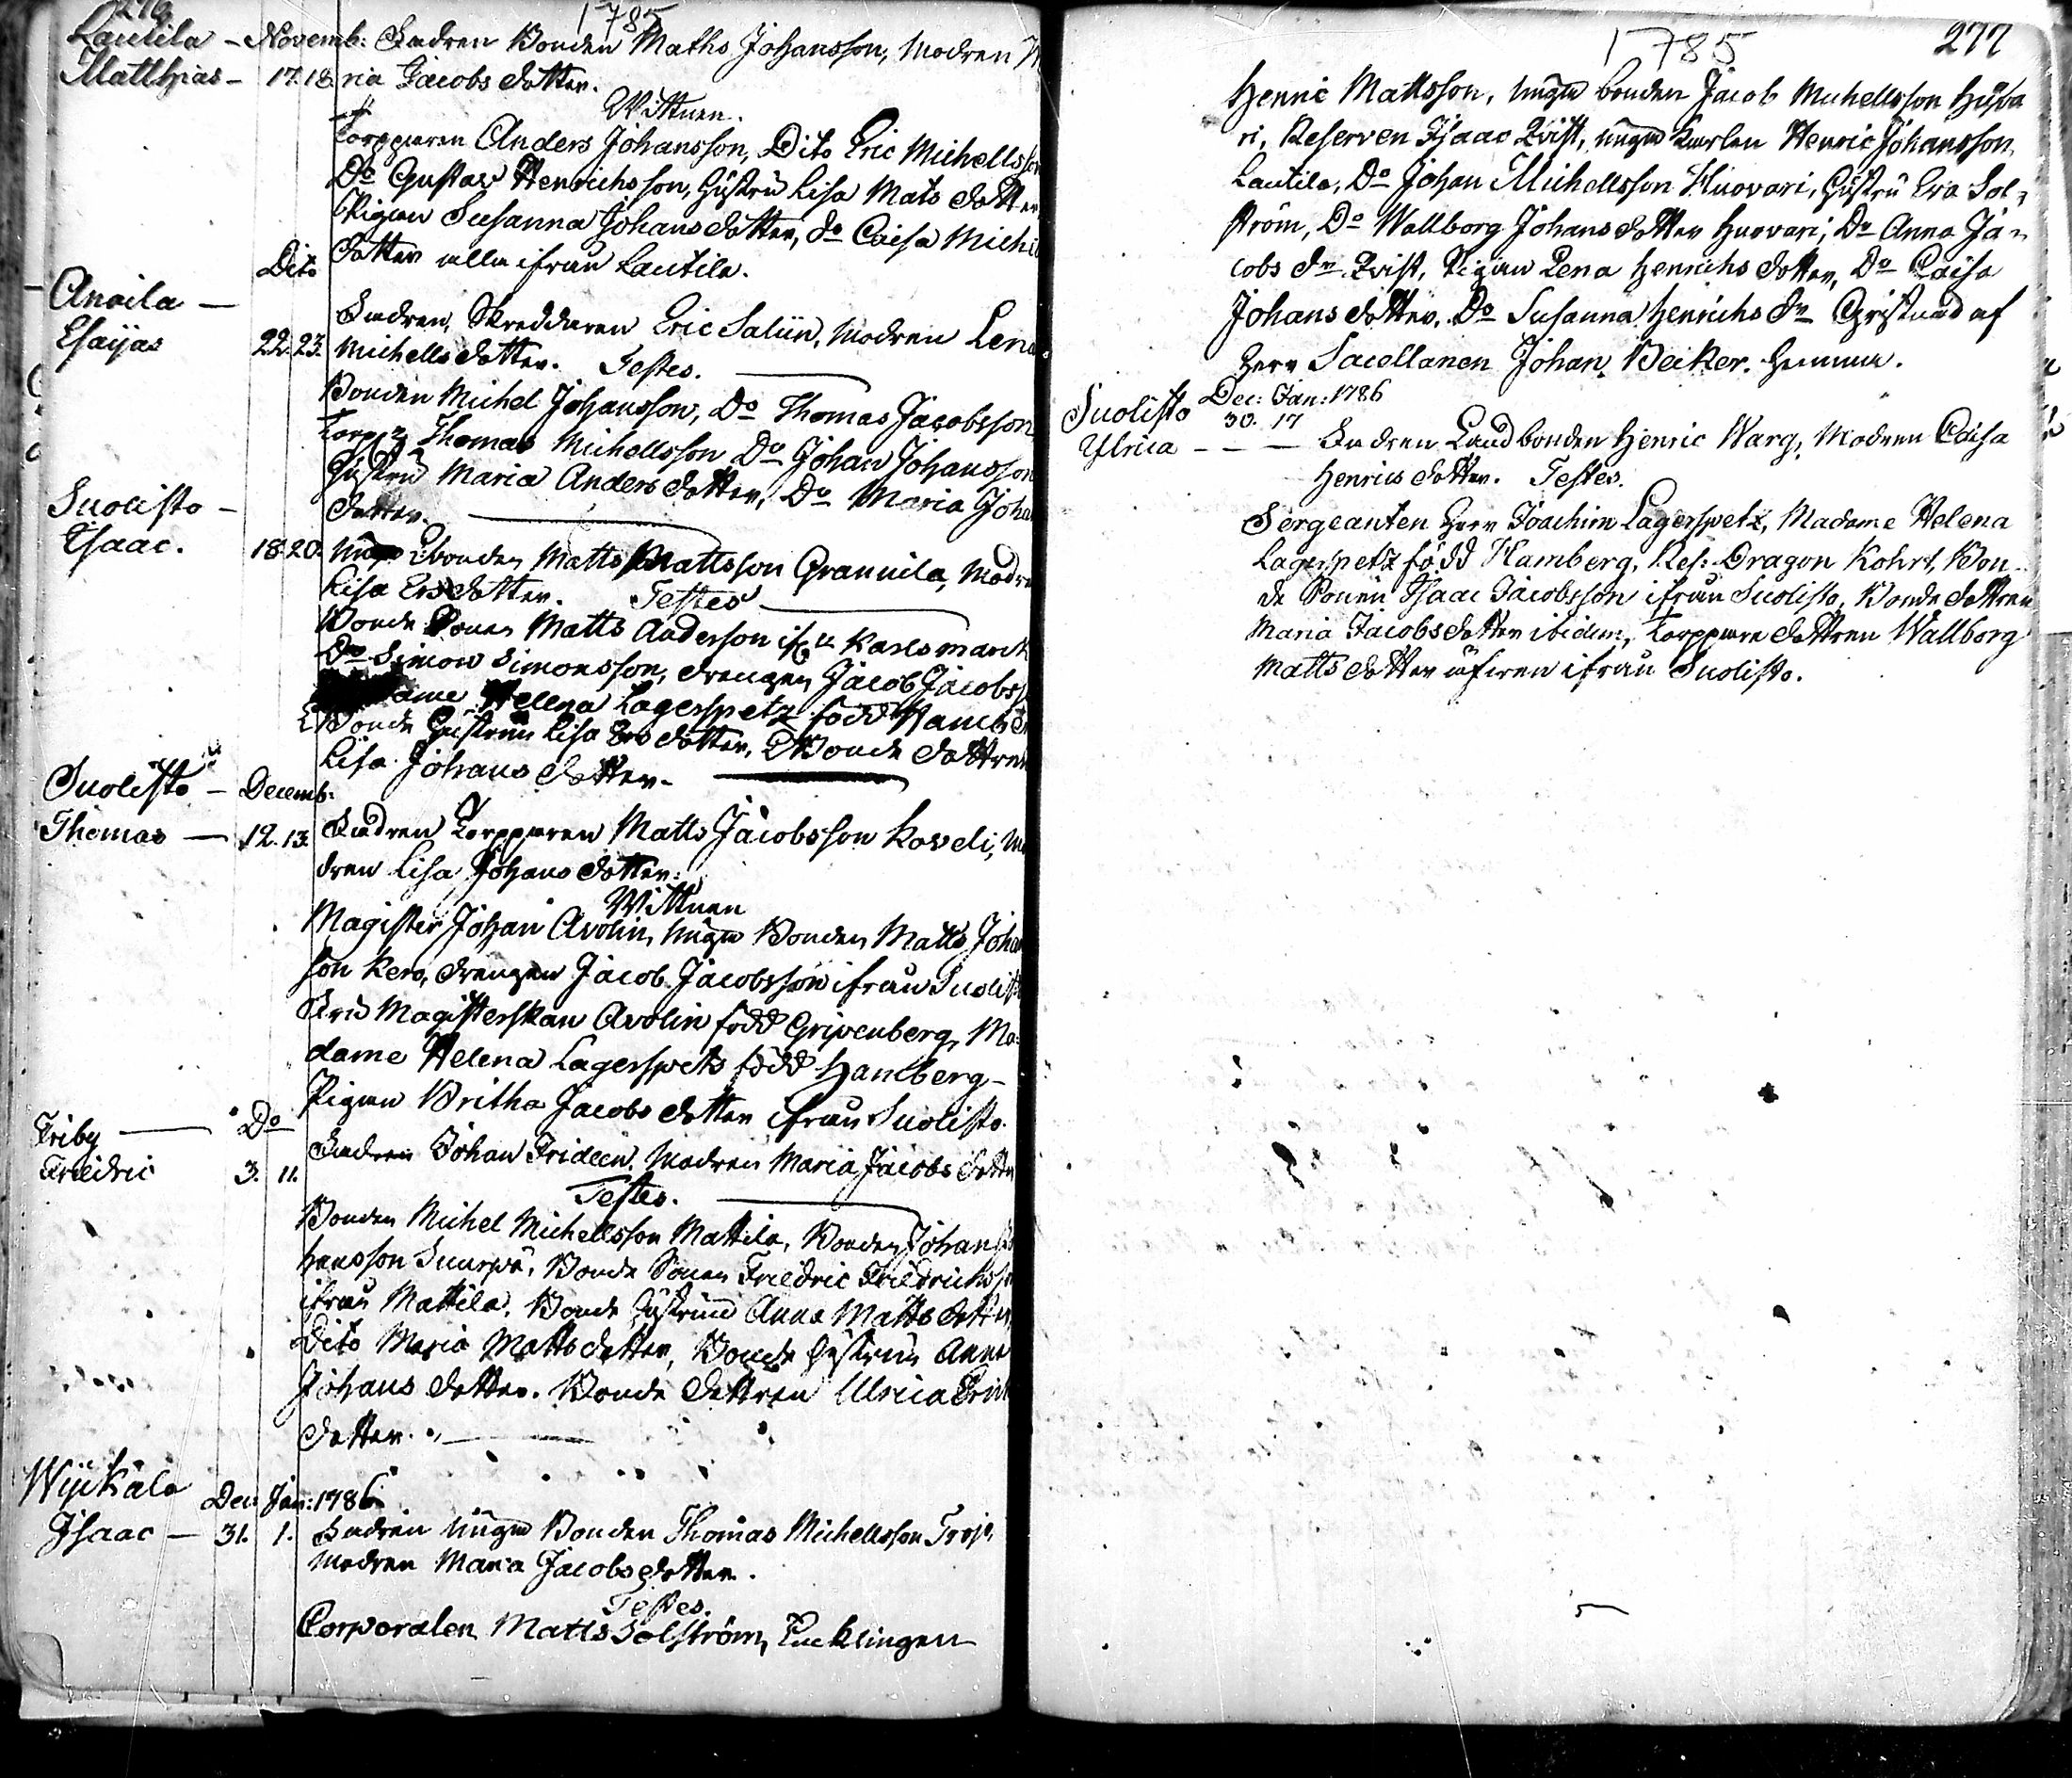 276.
1785
Lautila - Novemb: Fadren Bonden Maths Johansson, Modren
Matthias - 17. 18. ria Jacobs dotter.
Wittnen.
Torpparen Anders Johansson, Dito Eric Michellsson
Do Gustav Henrichsson, Hustru Lisa Mats dotter
Pigan Susanna Johansdotter, do Caisa Michi
dotter alla ifrån Lautila.
Anoila - Dito
Esaijas 22. 23. Fadren, Skreddaren Eric Saliin, Modren Lena
Michellsdotter. Testes.
Bonden Michel Johansson, Do Thomas Jacobsson
Torp: Thomas Michellsson Do Johan Johansson
Hustru Maria Andersdotter, Do Maria Joha
dotter.
Suolisto -
Isaac. 18. 20. Unge bonden Matts Mattsson Grannila, Modren
Lisa Ersdotter. Testes
Bonde Sonen Matts Anderson Karlsmark
Do Simon Simonsson, drengen Jacob Jacobss
ame Helena Lagerspetz född Hamber
Bonde Hustrun Lisa Ersdotter, Bonde dottren
Lisa Johans dotter.
Suolisto - Decemb:
Thomas - 12. 13. Fadren Torpparen Matts Jacobsson Koveli, Mo
dren Lisa Johans dotter.
Wittnen
Magister Johan Avolin, Unga Bonden Matts Johan
son Kero, drengen Jacob Jacobsson ifrån Suolist
Fru Magisterskan Avolin född Gripenberg, Ma
dame Helena Lagerspets född Hamberg
Pigan Britha Jacobs dotter ifrån Suolisto.
Friby - Do
Friedric 3. 11. Fadren Johan Frideen, Modren Maria Jacobs dotter
Testes.
Bonden Michel Michellsson Mattila, Bonden Johan
hansson Suurpä, Bonde Sonen Friedric Friedrichss
ifrån Mattila, Bonde Hustrun Anna Matts dotter
Dito Maria Matts dotter, Bonde Hustrun Anna
Johans dotter. Bonde dottren Ulrica Eric
dotter.
Wijkala Dec: Jan: 1786
Isaac - 31. 1. Fadren Unga Bonden Thomas Michellsson Troj,
Modren Maria Jacobsdotter.
Testes.
Corporalen Matts Solström, Enklingen
1785
277
Henric Mattsson, Unga bonden Jacob Michellsson Huva
ri, Reserven Isaac Qvist, unga Karlen Henric Johansson
Lautila, Do Johan Michellsson Huovari, Hustru Eva Sol-
ström, Do Wallborg Johansdotter Huovari, Do Anna Ja-
cobs dr Qvist, Pigan Lena Henrichs dotter, Do Caisa
Johans dotter. Do Susanna Henrichs dr Christnad af
Herr Sacellanen Johan Becker. Hemma.
Suolisto Dec: Jan: 1786
30. 17
Ulrica - - - Fadren Landbonden Henric Warg, Modren Caisa
Henrics dotter. Testes.
Sergeanten Herr Joachim Lagerspetz, Madame Helena
Lagerspetz född Hamberg, Res: Dragon Kohrt, Bon-
de Sonen Isaac Jacobsson ifrån Suolisto, Bonde dottren
Maria Jacobsdotter ibidem, Torppare dottren Wallborg
Matts dotter äfwen ifrån Suolisto.